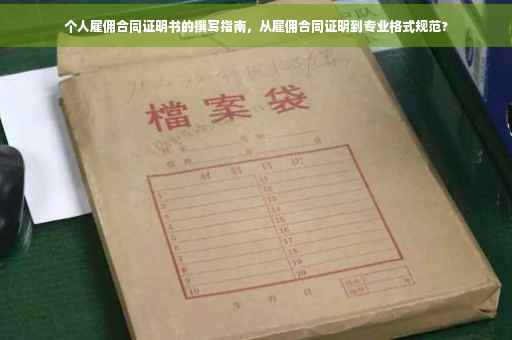 个人雇佣合同证明书的撰写指南，从雇佣合同证明到专业格式规范?
檔案袋
材料目次
1 11
2 12
3 13
4 14
5 15
6 16
7 17
8 18
9 19
10 20
年 月 日